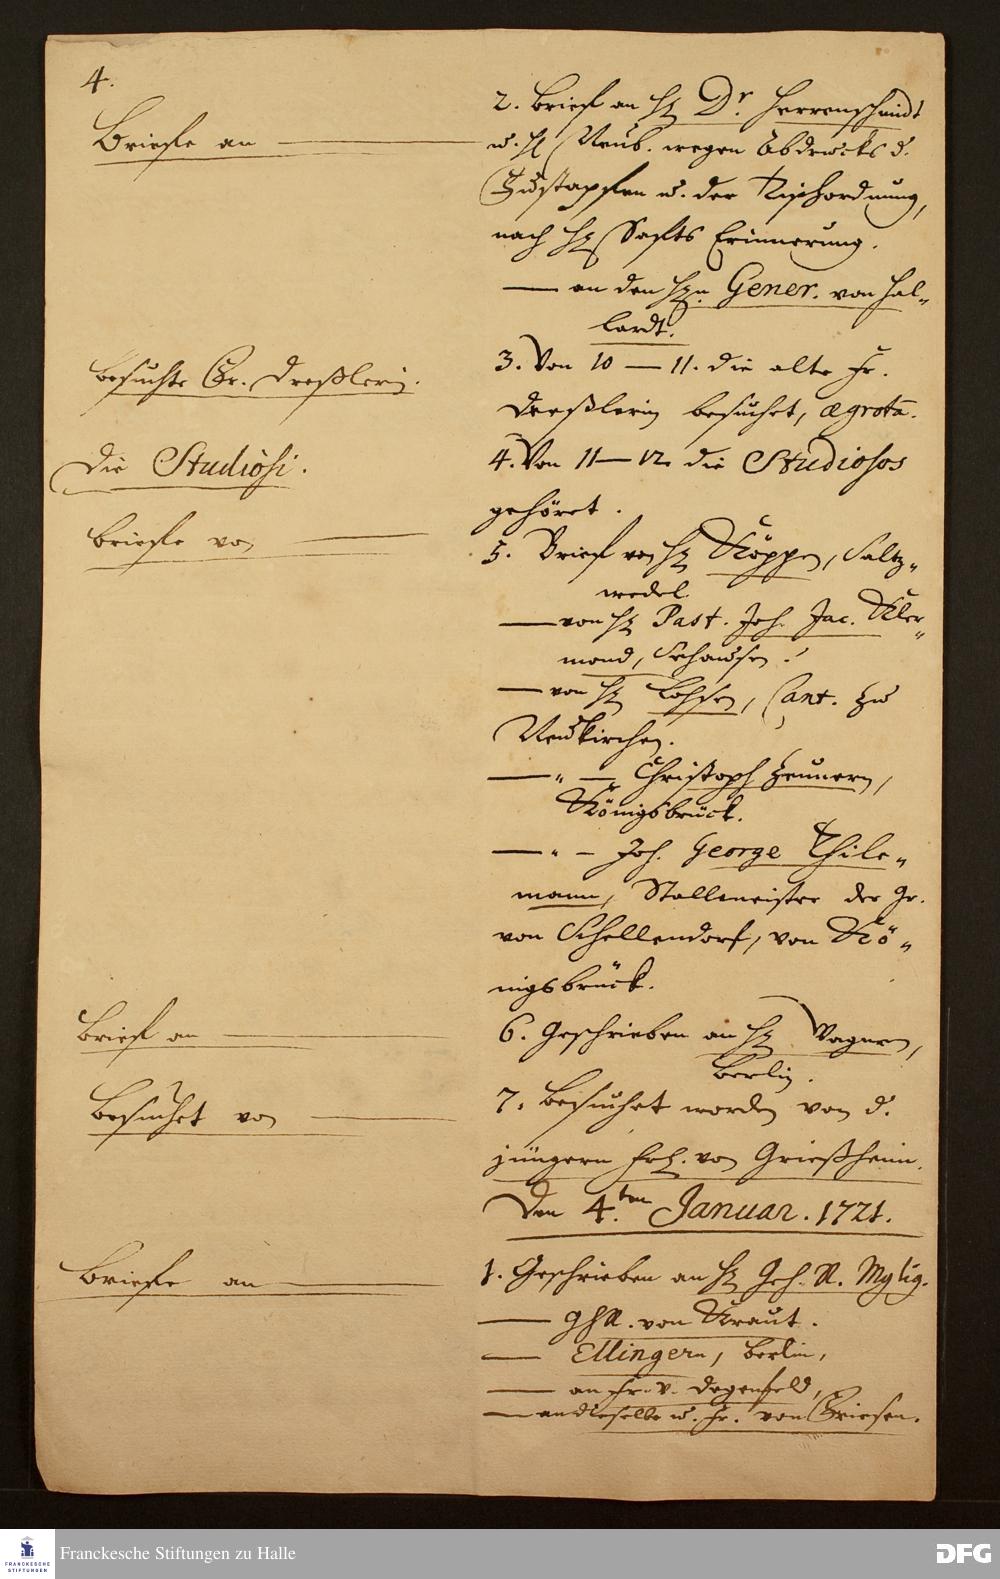 4.
Briefe an
2. Brief an H. Dr. Herrenschmidt
u. H. Neub. wegen Abdrucks d.
Fußstapfen u. der Tischordnung,
nach H. Erinnerung.
— an den Hn. Gener. von Hal-
lardt.
besuchte Fr. Dreßlerin.
3. Von 10 — 11. die alte Fr.
Dreßlerin besuchet, ægrota.
Die Studiosi.
4. Von 11 — 12. die Studiosos
gehöret.
briefe von
5. Brief von H. Köppen, Saltz-
wedel.
— von H. Past. Joh. Jac.
mond, Sehausen.
— von H. Lohsen, Cant. zu
Neukirchen.
— " — Christoph Zeunern,
Königsbrück.
— " — Joh. George Thile-
mann, Stallmeister der Gr.
von Schellendorf, von Kö-
nigsbrück.
Brief an
6. Geschrieben an H. Wagnern,
Berlin.
Besuchet von
7. Besuchet worden von d.
jüngern Frl. von Grießheim.
Den 4.ten Januar. 1721.
Briefe an
1. Geschrieben an H. Geh. R. Mylig.
— GhR. von Kraut.
— Ellingern, Berlin,
— an Fr. v. Degenfeld,
— an dieselbe u. Fr. von Griesen.
Franckesche Stiftungen zu Halle
FRANCKESCHE
STIFTUNGEN
DFG